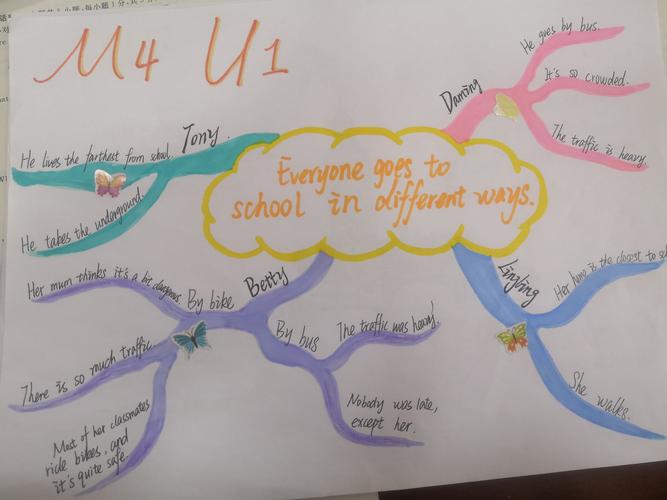 M4 U1
Everyone goes to
school in different ways.
Tony.
He lives the farthest from school.
He takes the underground.
Daming
He goes by bus.
It's so crowded.
The traffic is heavy.
Betty
By bike
Her mum thinks it's a bit dangerous.
There is so much traffic.
Most of her classmates
ride bikes, and
it's quite safe.
By bus
The traffic was heavy.
Nobody was late,
except her.
Lingling
Her home is the closest to
She walks.